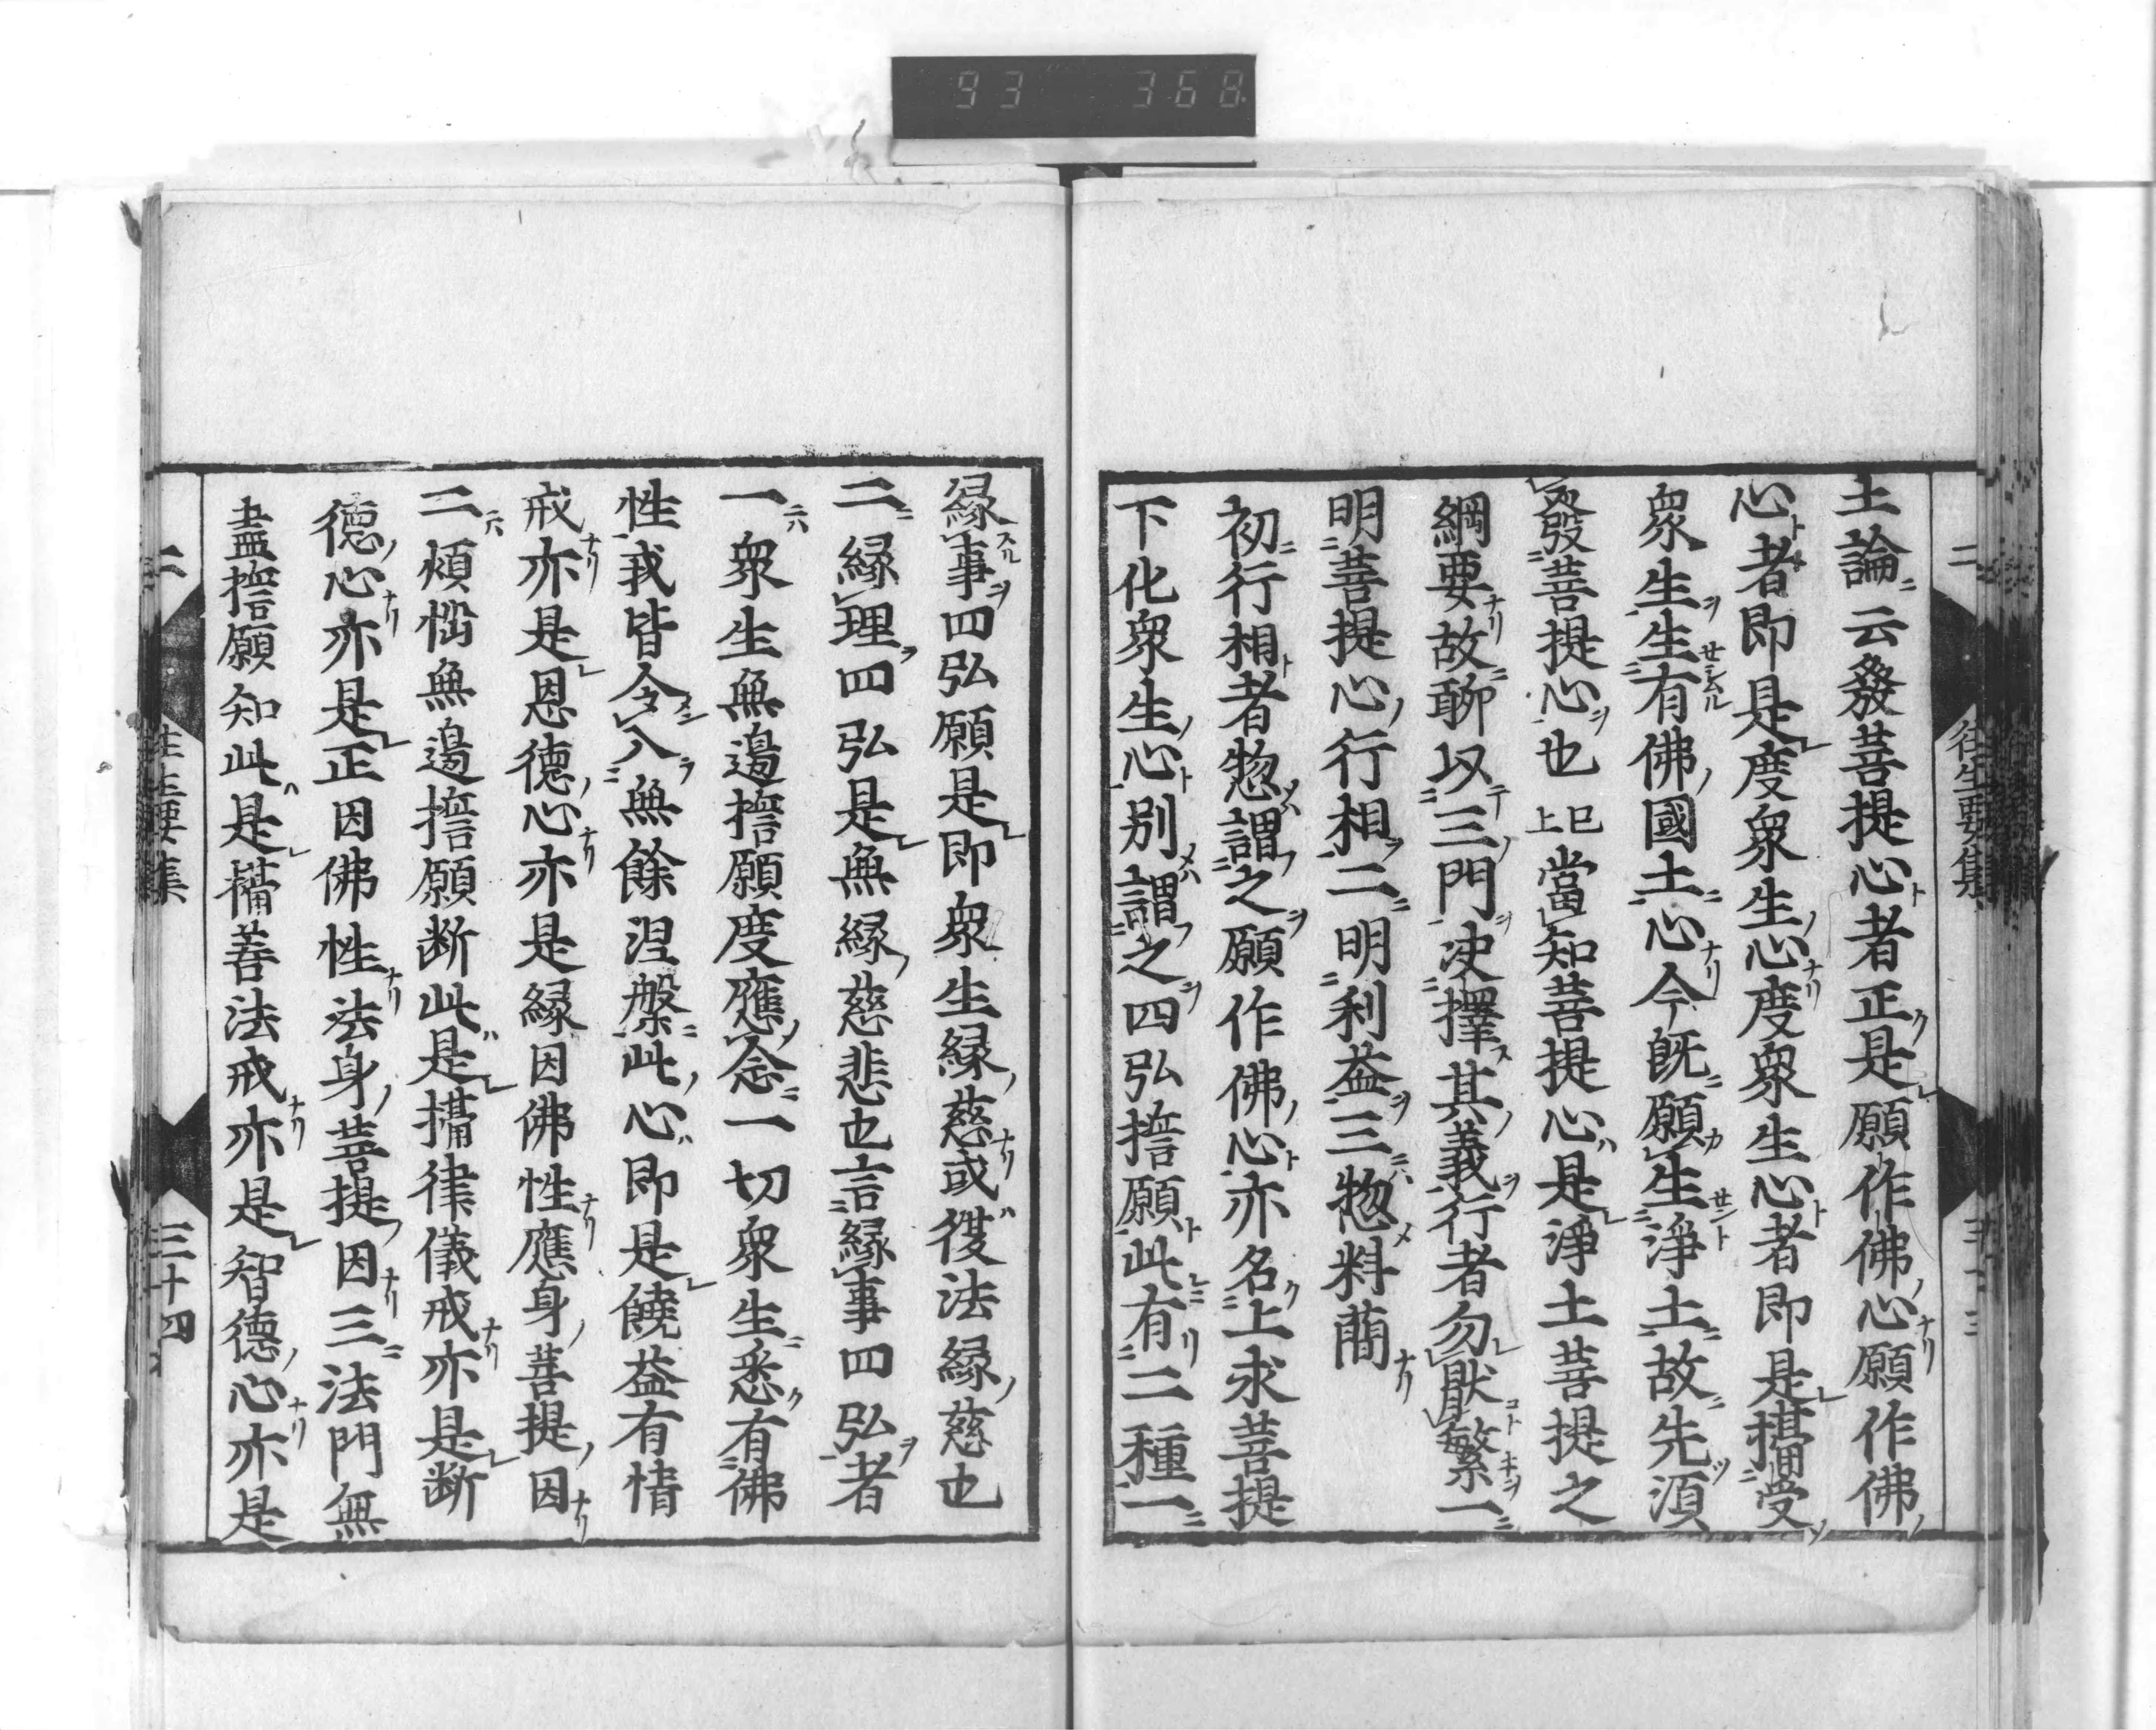 93 368
二 往生要集
土論云發菩提心者正是願作佛心願作佛
心者即是度衆生心度衆生心者即是攝受
衆生生有佛國土心今既願生淨土故先須
發菩提心也 已上 當知菩提心是淨土菩提之
綱要故聊以三門決擇其義行者勿厭繁一
明菩提心行相二明利益三惣料蕳
初行相者惣謂之願作佛心亦名上求菩提
下化衆生心別謂之四弘誓願此有二種一
縁事四弘願是即衆生縁慈或復法縁慈也
二縁理四弘是無縁慈悲也言縁事四弘者
一衆生無邊誓願度應念一切衆生悉有佛
性我皆令入無餘涅槃此心即是饒益有情
戒亦是恩德心亦是縁因佛性應身菩提因
二煩惱無邊誓願断此是攝律儀戒亦是断
德心亦是正因佛性法身菩提因三法門無
盡誓願知此是攝善法戒亦是智德心亦是
二 往生要集 三十四